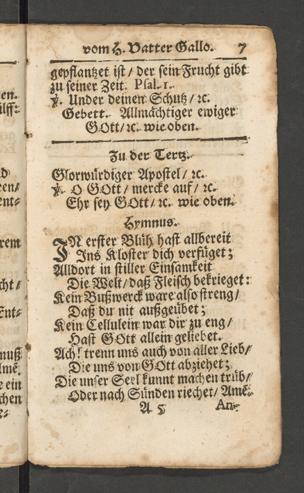 vom H. Vatter Gallo. 7
gepflantzet ist / der sein Frucht gibt
zu seiner Zeit. Psal. 1.
℣. Under deinen Schutz / ꝛc.
Gebett. Allmächtiger ewiger
GOtt / ꝛc. wie oben.
Zu der Tertz.
Glorwürdiger Apostel / ꝛc.
℣. O GOtt / mercke auf / ꝛc.
Ehr sey GOtt / ꝛc. wie oben.
Hymnus.
IN erster Blüh hast allbereit
Ins Kloster dich verfüget;
Alldort in stiller Einsamkeit
Die Welt / daß Fleisch bekrieget:
Kein Bußwerck ware also streng /
Daß du nit außgeübet;
Kein Cellulein war dir zu eng /
Hast GOtt allein geliebet.
Ach! trenn uns auch von aller Lieb /
Die uns von GOtt abziehet;
Die unser Seel kunnt machen trüb /
Oder nach Sünden riechet / Amẽ.
A 5 An-